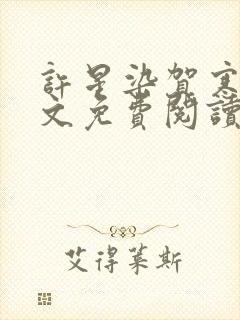 許星染賀寒
文免費閱讀
艾得萊斯